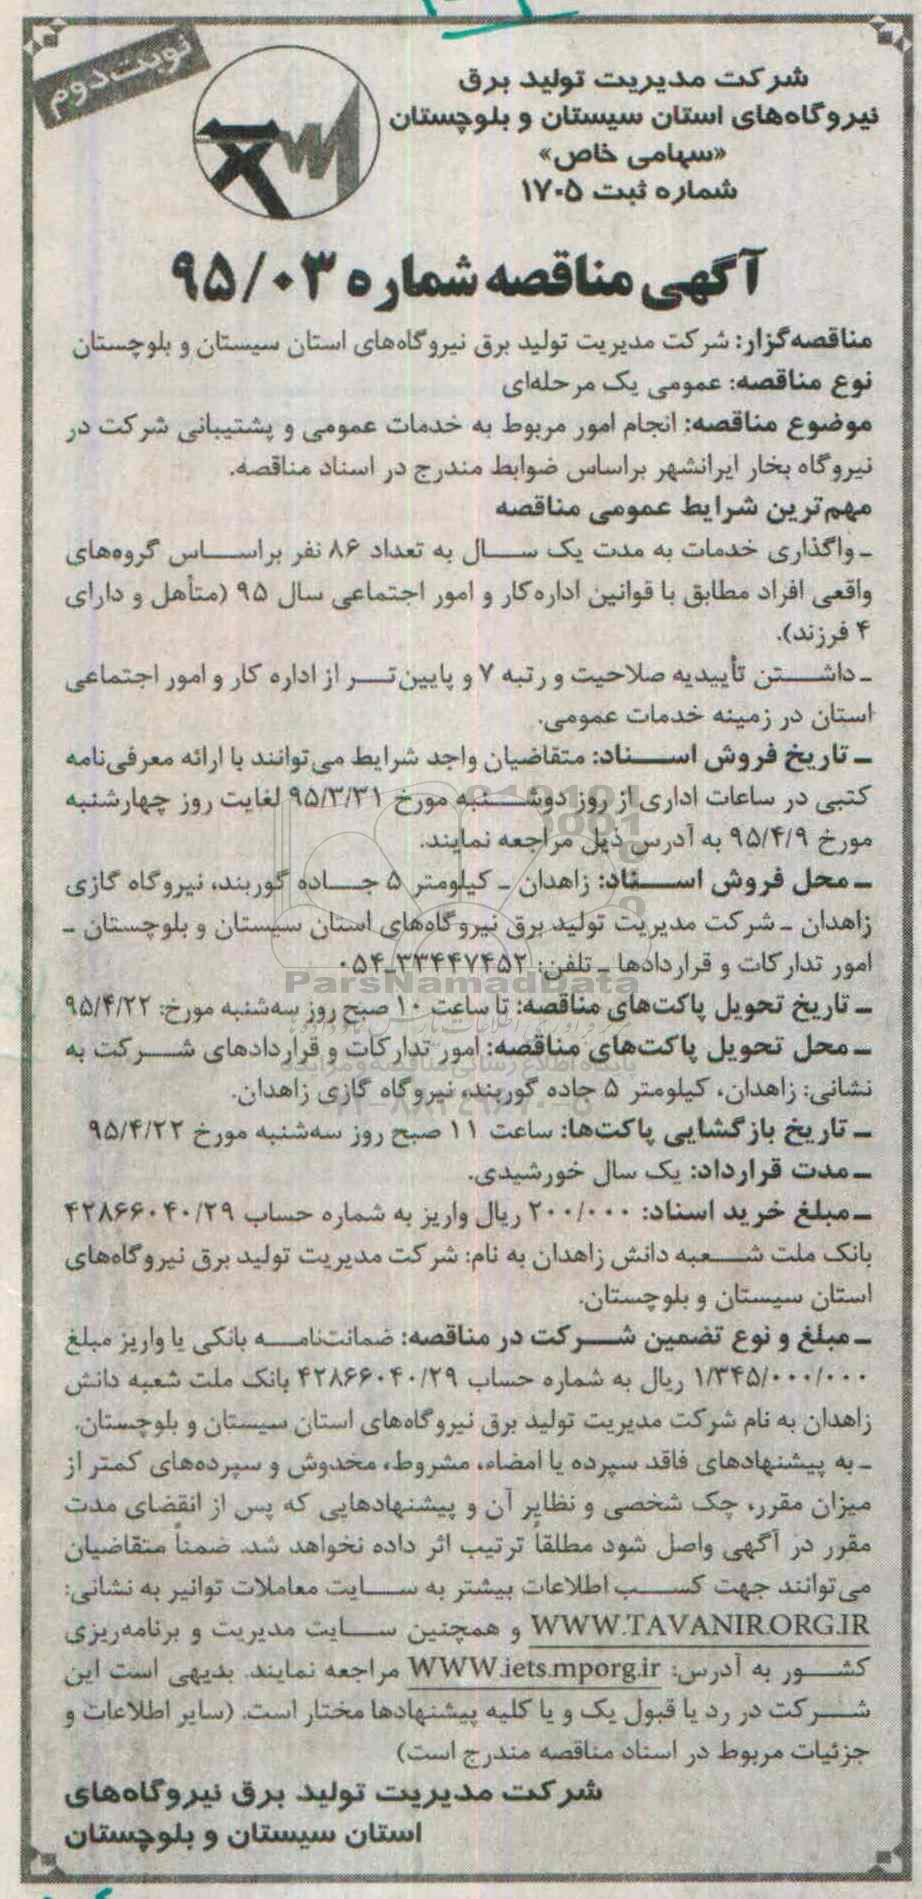 نوبت دوم
شرکت مدیریت تولید برق
نیروگاه‌های استان سیستان و بلوچستان
«سهامی خاص»
شماره ثبت ۱۷۰۵
آگهی مناقصه شماره ۹۵/۰۳
مناقصه‌گزار: شرکت مدیریت تولید برق نیروگاه‌های استان سیستان و بلوچستان
نوع مناقصه: عمومی یک مرحله‌ای
موضوع مناقصه: انجام امور مربوط به خدمات عمومی و پشتیبانی شرکت در
نیروگاه بخار ایرانشهر براساس ضوابط مندرج در اسناد مناقصه.
مهم‌ترین شرایط عمومی مناقصه
ـ واگذاری خدمات به مدت یک سال به تعداد ۸۶ نفر براساس گروه‌های
واقعی افراد مطابق با قوانین اداره کار و امور اجتماعی سال ۹۵ (متأهل و دارای
۴ فرزند).
ـ داشتن تأییدیه صلاحیت و رتبه ۷ و پایین‌تر از اداره کار و امور اجتماعی
استان در زمینه خدمات عمومی.
ـ تاریخ فروش اسناد: متقاضیان واجد شرایط می‌توانند با ارائه معرفی‌نامه
کتبی در ساعات اداری از روز دوشنبه مورخ ۹۵/۳/۳۱ لغایت روز چهارشنبه
مورخ ۹۵/۴/۹ به آدرس ذیل مراجعه نمایند.
ـ محل فروش اسناد: زاهدان ـ کیلومتر ۵ جاده گوربند، نیروگاه گازی
زاهدان ـ شرکت مدیریت تولید برق نیروگاه‌های استان سیستان و بلوچستان ـ
امور تدارکات و قراردادها ـ تلفن: ۳۳۴۴۷۴۵۲-۰۵۴
ParsNamadData
ـ تاریخ تحویل پاکت‌های مناقصه: تا ساعت ۱۰ صبح روز سه‌شنبه مورخ: ۹۵/۴/۲۲
ـ محل تحویل پاکت‌های مناقصه: امور تدارکات و قراردادهای شرکت به
نشانی: زاهدان، کیلومتر ۵ جاده گوربند، نیروگاه گازی زاهدان.
ـ تاریخ بازگشایی پاکت‌ها: ساعت ۱۱ صبح روز سه‌شنبه مورخ ۹۵/۴/۲۲
ـ مدت قرارداد: یک سال خورشیدی.
ـ مبلغ خرید اسناد: ۲۰۰/۰۰۰ ریال واریز به شماره حساب ۴۲۸۶۶۰۴۰/۲۹
بانک ملت شعبه دانش زاهدان به نام: شرکت مدیریت تولید برق نیروگاه‌های
استان سیستان و بلوچستان.
ـ مبلغ و نوع تضمین شرکت در مناقصه: ضمانت‌نامه بانکی یا واریز مبلغ
۱/۳۴۵/۰۰۰/۰۰۰ ریال به شماره حساب ۴۲۸۶۶۰۴۰/۲۹ بانک ملت شعبه دانش
زاهدان به نام شرکت مدیریت تولید برق نیروگاه‌های استان سیستان و بلوچستان.
ـ به پیشنهادهای فاقد سپرده یا امضاء، مشروط، مخدوش و سپرده‌های کمتر از
میزان مقرر، چک شخصی و نظایر آن و پیشنهادهایی که پس از انقضای مدت
مقرر در آگهی واصل شود مطلقاً ترتیب اثر داده نخواهد شد. ضمناً متقاضیان
می‌توانند جهت کسب اطلاعات بیشتر به سایت معاملات توانیر به نشانی:
WWW.TAVANIR.ORG.IR و همچنین سایت مدیریت و برنامه‌ریزی
کشور به آدرس: WWW.iets.mporg.ir مراجعه نمایند. بدیهی است این
شرکت در رد یا قبول یک و یا کلیه پیشنهادها مختار است. (سایر اطلاعات و
جزئیات مربوط در اسناد مناقصه مندرج است)
شرکت مدیریت تولید برق نیروگاه‌های
استان سیستان و بلوچستان